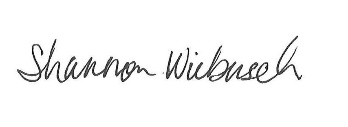 Shannon Wiebusch